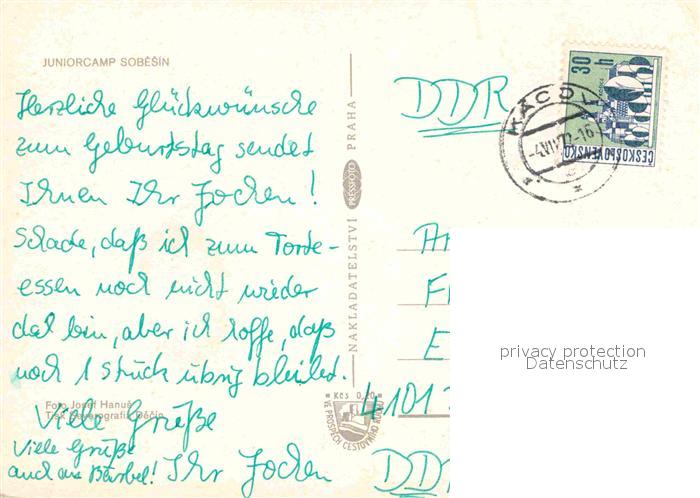 JUNIORCAMP SOBĚŠÍN
Herzliche Glückwünsche
zum Geburtstag sendet
Ihnen Ihr Jochen!
Schade, daß ich zum Torte-
essen noch nicht wieder
da bin, aber ich hoffe, daß
noch 1 Stück übrig bleibt.
Viele Grüße
Ihr Jochen
Viele Grüße
auch an Bärbel!
Foto Josef Hanuš
Tisk Severografia Děčín
NAKLADATELSTVÍ PRESSFOTO PRAHA
Kčs 0,20
VE PROSPĚCH CESTOVNÍHO RUCHU
DDR
KÁCOV
30 h
ČESKOSLOVENSKO
41017
DDR
privacy protection
Datenschutz